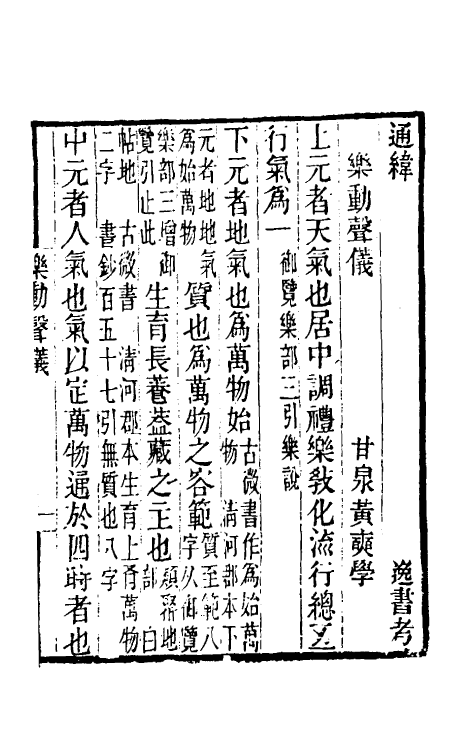 通緯　逸書考
樂動聲儀　甘泉黃奭學
上元者天氣也居中調禮樂敎化流行總五
行氣爲一御覽樂部三引樂說
下元者地氣也爲萬物始古微書作爲始萬物　淸河郡本下
元者地地氣爲始萬物質也爲萬物之容範質至範八字从御覽
樂部三增御覽引止此生育長養蓋藏之主也類聚地部　白
帖地　古微書　淸河郡本生育上有萬物二字　書鈔百五十七引無質也八字
中元者人氣也氣以定萬物通於四時者也
樂動聲儀　一